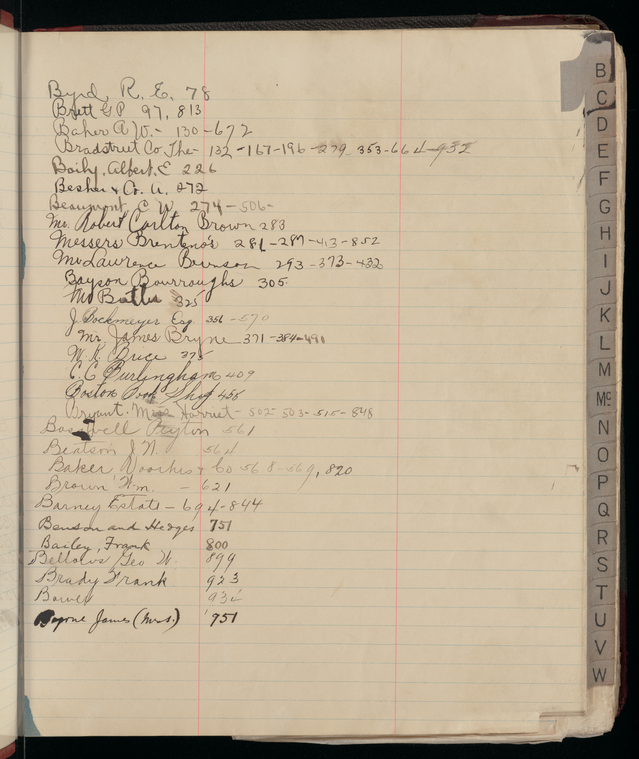 Byrd, R. E. 78
Brett G.P 97, 813
Baker A W. - 130-672
Bradstreet Co. The - 132-167-196-279 353-664-932
Baily, Albert, E 226
Besher & Co. A. 272
Beaumont, C W. 274-506-
Mr. Robert Carlton Brown 283
Messers Brentano's 281-287-413-852
Mr Lawrence 293-373-432
Bayson Bourroughs 305
Mr Butler 325
J. Bockmeyer Esq 356-570
Mr. James Bryne 371-384-491
W. K. Brice 375
C. C Burlingham 409
Boston Book Shop 455
Bryant. Miss Harriet - 502 503-515-848
Boswell Peyton 561
Beatson J. N. 564
Baker, Voorhis & Co 568-569, 820
Brown Wm. - 621
Barney Estate - 694-844
Benson and Hedges 751
Bailey, Frank 800
Bellows Geo W. 899
Brady Frank 923
Bowes
James (Mrs.) 951
B
C
D
E
F
G
H
I
J
K
L
M
Mc
N
O
P
Q
R
S
T
U
V
W